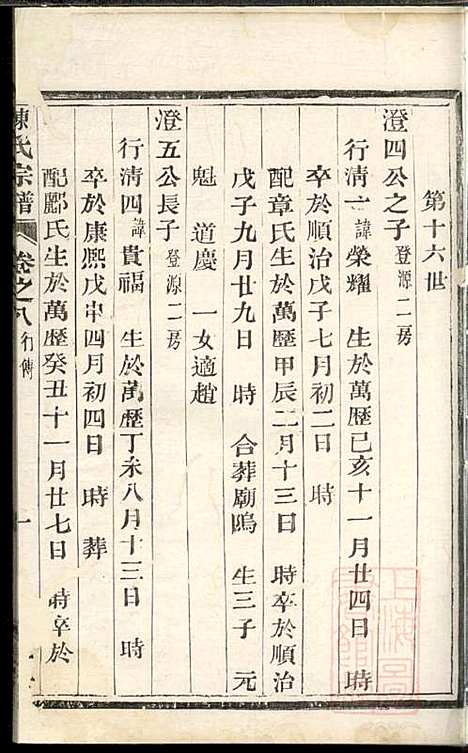 第十六世
澄四公之子登源二房
行清一諱榮耀 生於萬歷己亥十一月廿四日 時
卒於順治戊子七月初二日 時
配章氏生於萬歷甲辰二月十三日 時卒於順治
戊子九月廿九日 時 合葬廟塢 生三子 元
魁 道慶 一女適趙
澄五公長子登源二房
行清四諱貴福 生於萬歷丁未八月十三日 時
卒於康熙戊申四月初四日 時 葬
配酈氏生於萬歷癸丑十一月廿七日 時卒於
陳氏宗譜 卷之八 行傳 一